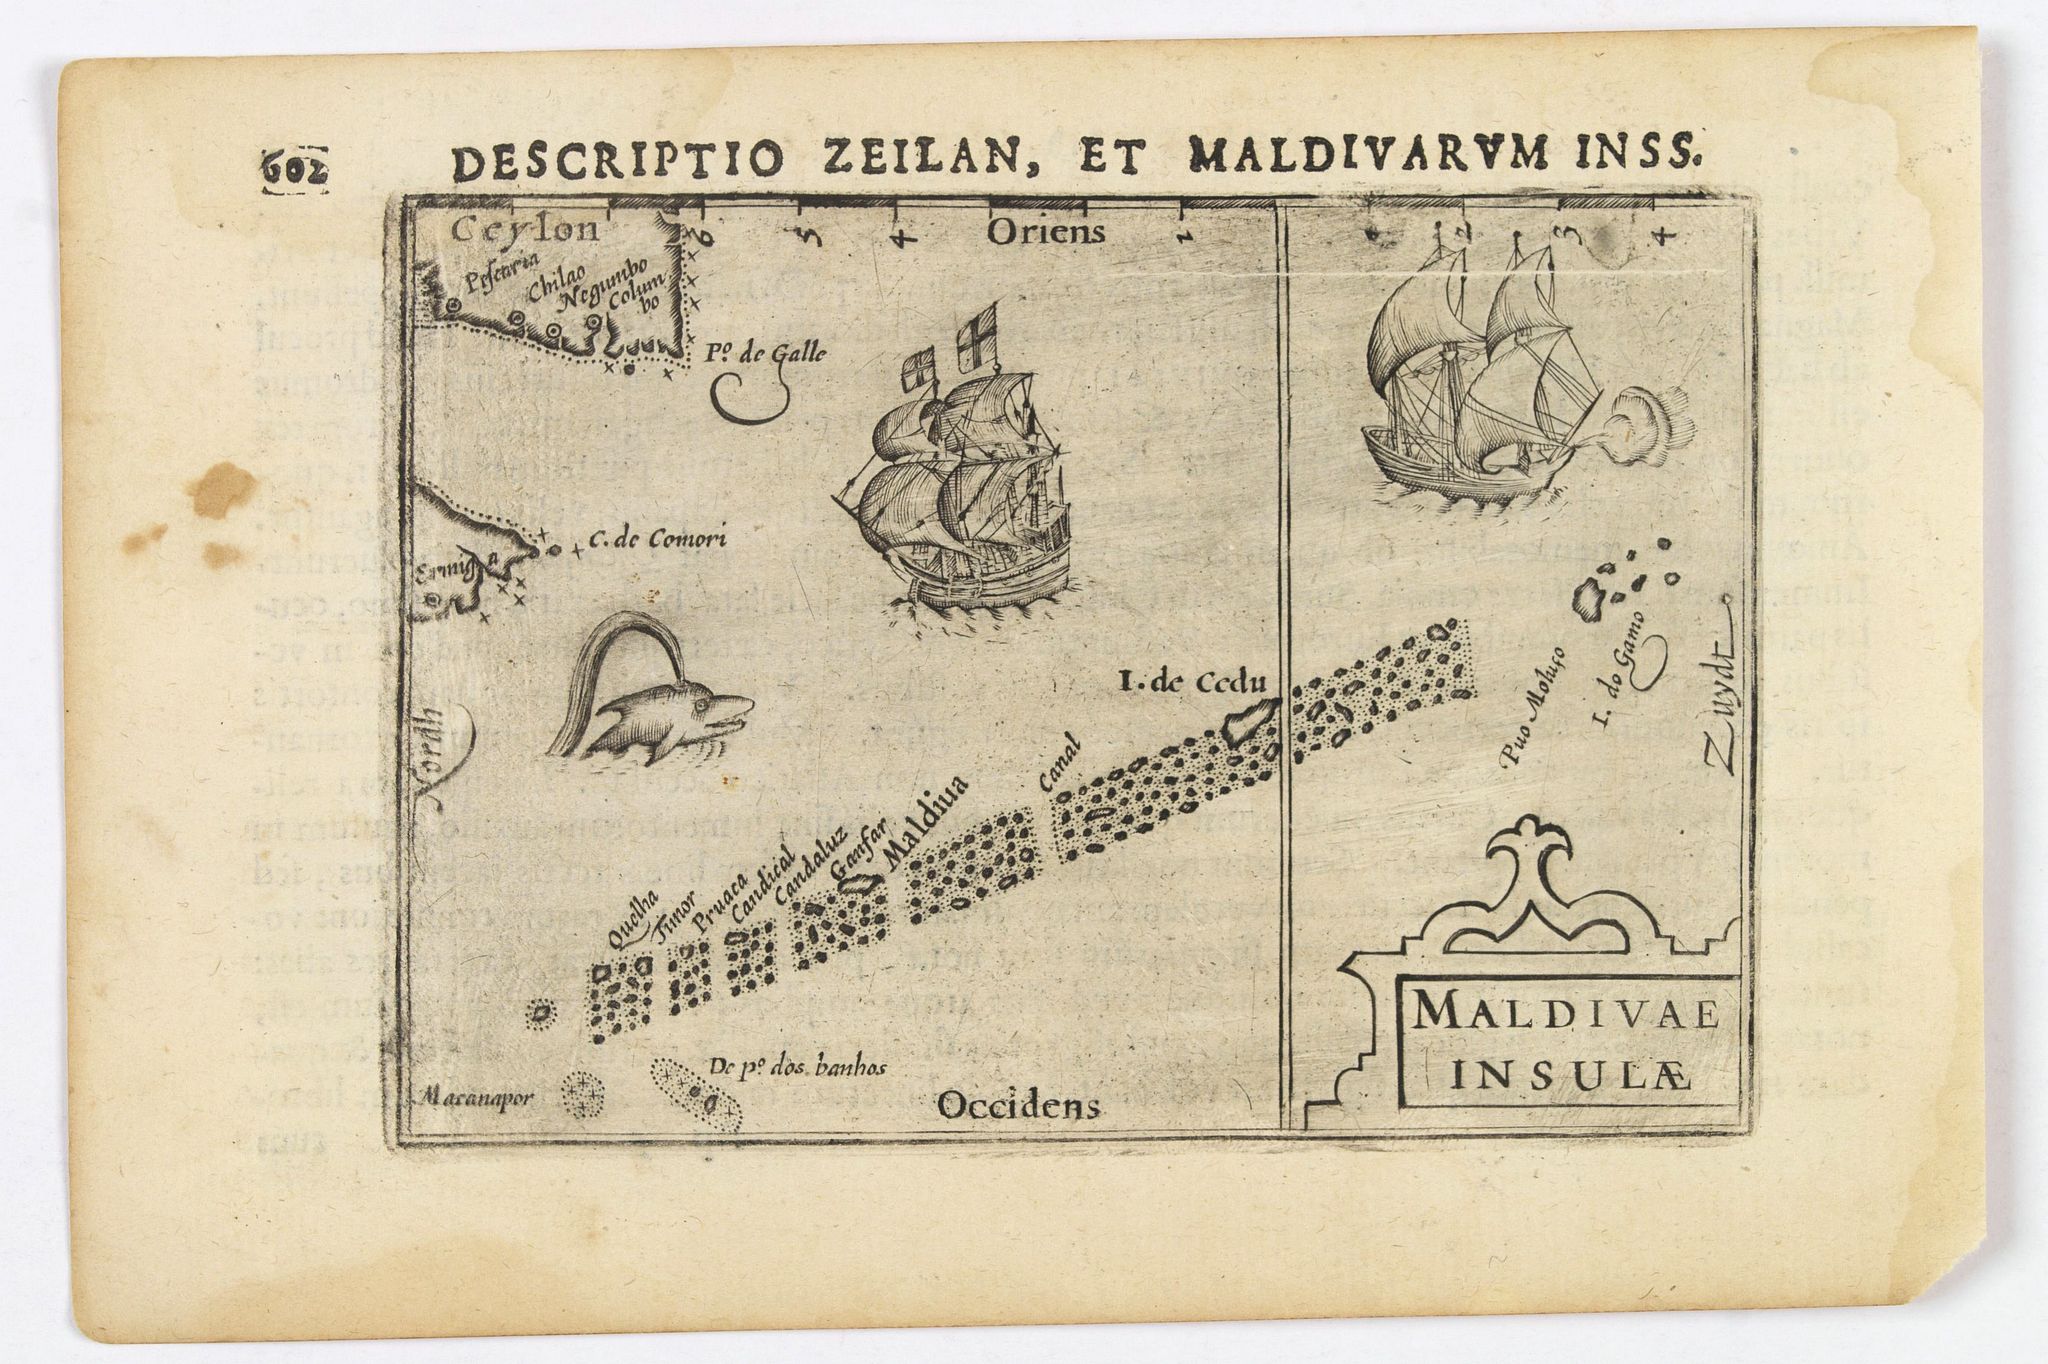 602
DESCRIPTIO ZEILAN, ET MALDIVARVM INSS.
Ceylon
Oriens
6 5 4 2 1 2 3 4
Pescaria
Chilao
Negumbo
Colum
bo
Pº. de Galle
C. de Comori
Nordh
I. de Cedu
Puo Moluço
I. do Gamo
Zuydt
Canal
Maldiua
Ganfar
Candaluz
Candicial
Pruaca
Timor
Quelha
De pº. dos banhos
Macanapor
Occidens
MALDIVAE
INSULÆ